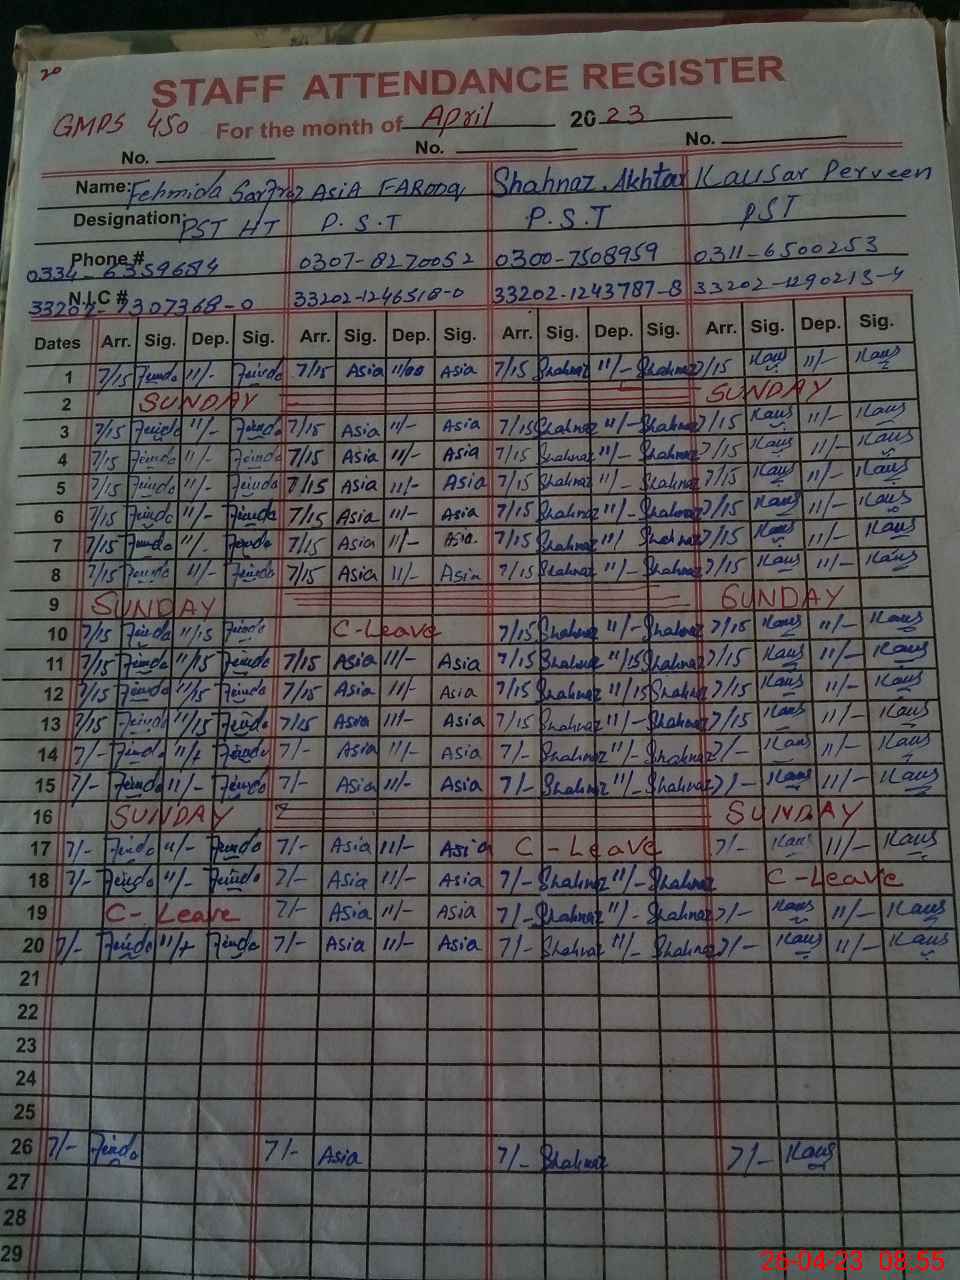 20
STAFF ATTENDANCE REGISTER
GMPS 450 For the month of April 2023
No. No. No.
Name: Fehmida Sarfraz ASiA FARooq Shahnaz Akhtar Kausar Perveen
Designation: PST HT P.S.T P.S.T PST
Phone # 0307-8270052 0300-7508959 0311-6500253
N.I.C # 33202-1246518-0 33202-1243787-8 33202-1290213-4
Dates Arr. Sig. Dep. Sig. Arr. Sig. Dep. Sig. Arr. Sig. Dep. Sig. Arr. Sig. Dep. Sig.
1 7/15 11/- 7/15 Asia 11/00 Asia 7/15 Shahnaz 11/- Shahnaz 7/15 Kaus 11/- Kaus
2 SUNDAY SUNDAY
3 7/15 11/- 7/15 Asia 11/- Asia 7/15 Shahnaz 11/- Shahnaz 7/15 Kaus 11/- Kaus
4 7/15 11/- 7/15 Asia 11/- Asia 7/15 Shahnaz 11/- Shahnaz 7/15 Kaus 11/- Kaus
5 7/15 11/- 7/15 Asia 11/- Asia 7/15 Shahnaz 11/- Shahnaz 7/15 Kaus 11/- Kaus
6 7/15 11/- 7/15 Asia 11/- Asia 7/15 Shahnaz 11/- Shahnaz 7/15 Kaus 11/- Kaus
7 7/15 11/- 7/15 Asia 11/- Asia 7/15 Shahnaz 11/ Shahnaz 7/15 Kaus 11/- Kaus
8 7/15 11/- 7/15 Asia 11/- Asia 7/15 Shahnaz 11/- Shahnaz 7/15 Kaus 11/- Kaus
9 SUNDAY SUNDAY
10 7/15 11/15 C-Leave 7/15 Shahnaz 11/- Shahnaz 7/15 Kaus 11/- Kaus
11 7/15 11/15 7/15 Asia 11/- Asia 7/15 Shahnaz 11/15 Shahnaz 7/15 Kaus 11/- Kaus
12 7/15 11/15 7/15 Asia 11/- Asia 7/15 Shahnaz 11/15 Shahnaz 7/15 Kaus 11/- Kaus
13 7/15 11/15 7/15 Asia 11/- Asia 7/15 Shahnaz 11/- Shahnaz 7/15 Kaus 11/- Kaus
14 7/- 7/- Asia 11/- Asia 7/- Shahnaz 11/- Shahnaz 7/- Kaus 11/- Kaus
15 7/- 11/- 7/- Asia 11/- Asia 7/- Shahnaz 11/- Shahnaz 7/- Kaus 11/- Kaus
16 SUNDAY SUNDAY
17 7/- 11/- 7/- Asia 11/- Asia C-Leave 7/- Kaus 11/- Kaus
18 7/- 11/- 7/- Asia 11/- Asia 7/- Shahnaz 11/- Shahnaz C-Leave
19 C-Leave 7/- Asia 11/- Asia 7/- Shahnaz 11/- Shahnaz 7/- Kaus 11/- Kaus
20 7/- 7/- Asia 11/- Asia 7/- Shahnaz 11/- Shahnaz 7/- Kaus 11/- Kaus
21
22
23
24
25
26 7/- 7/- Asia 7/- Shahnaz 7/- Kaus
27
28
29
26-04-23 08:55